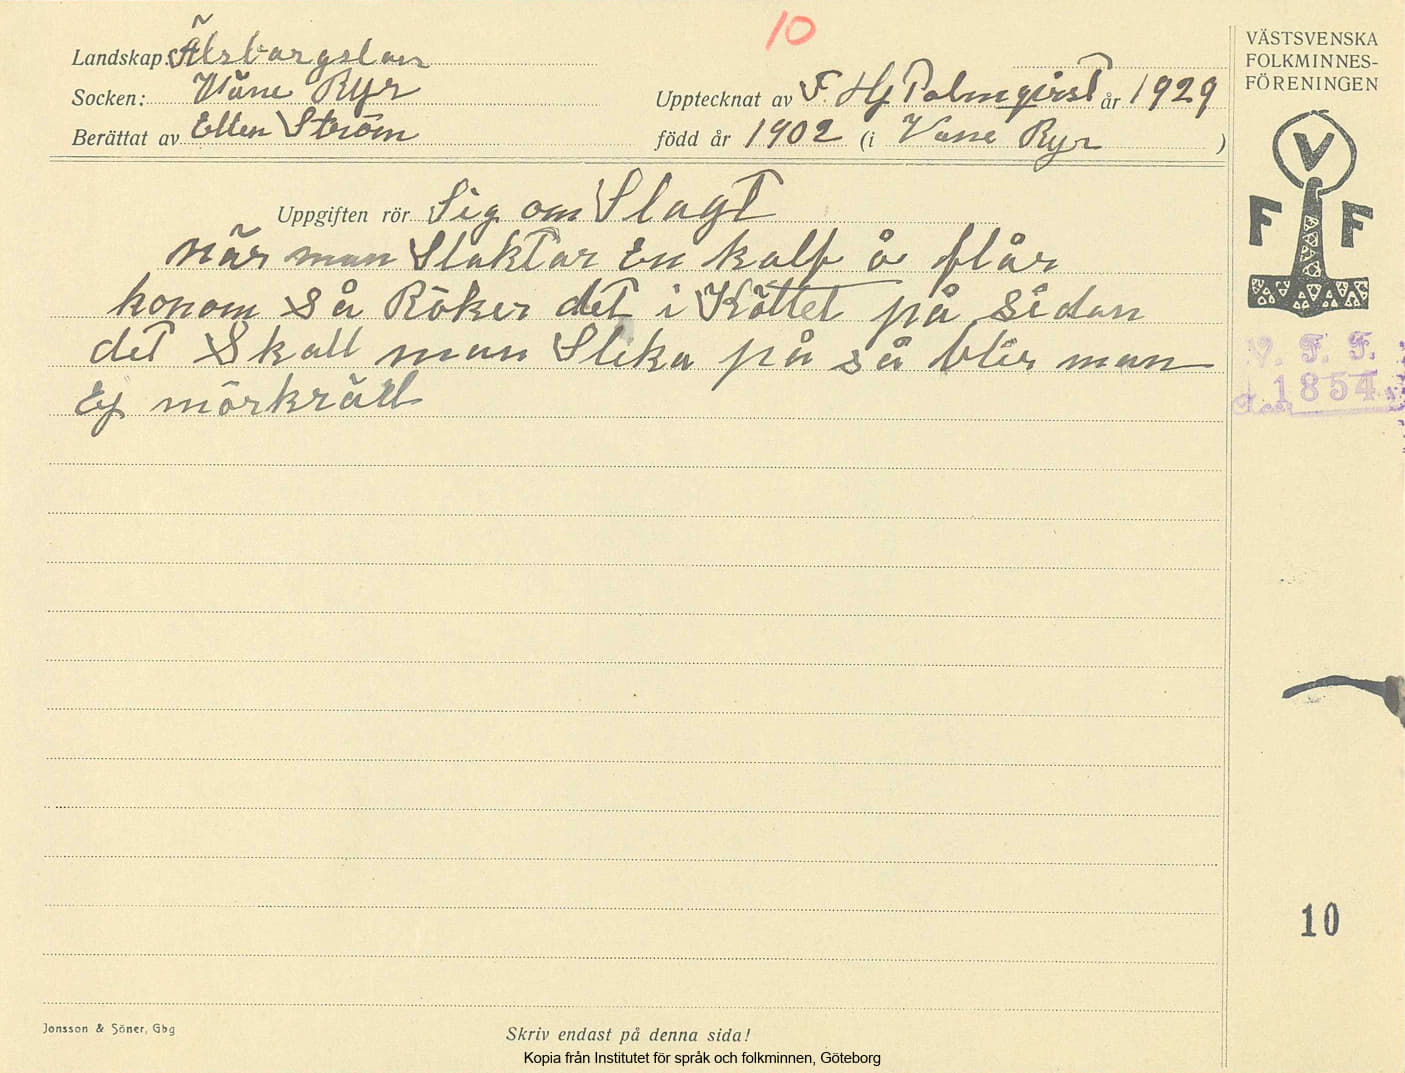 10
Landskap: Älvsborgslän
Socken: Väne Ryr
Berättat av Ellen Ström
Upptecknat av F. Hj Palmqvist år 1929
född år 1902 (i Väne Ryr )
VÄSTSVENSKA
FOLKMINNES-
FÖRENINGEN
V
F F
Uppgiften rör Sig om Slagt
när man Slaktar En kalf å flår
honom Så Röker det i Köttet på Sidan
det Skall man Slika på så blir man
Ej mörkrädd
V. F. F.
1854
10
Jonsson & Söner, Gbg
Skriv endast på denna sida!
Kopia från Institutet för språk och folkminnen, Göteborg